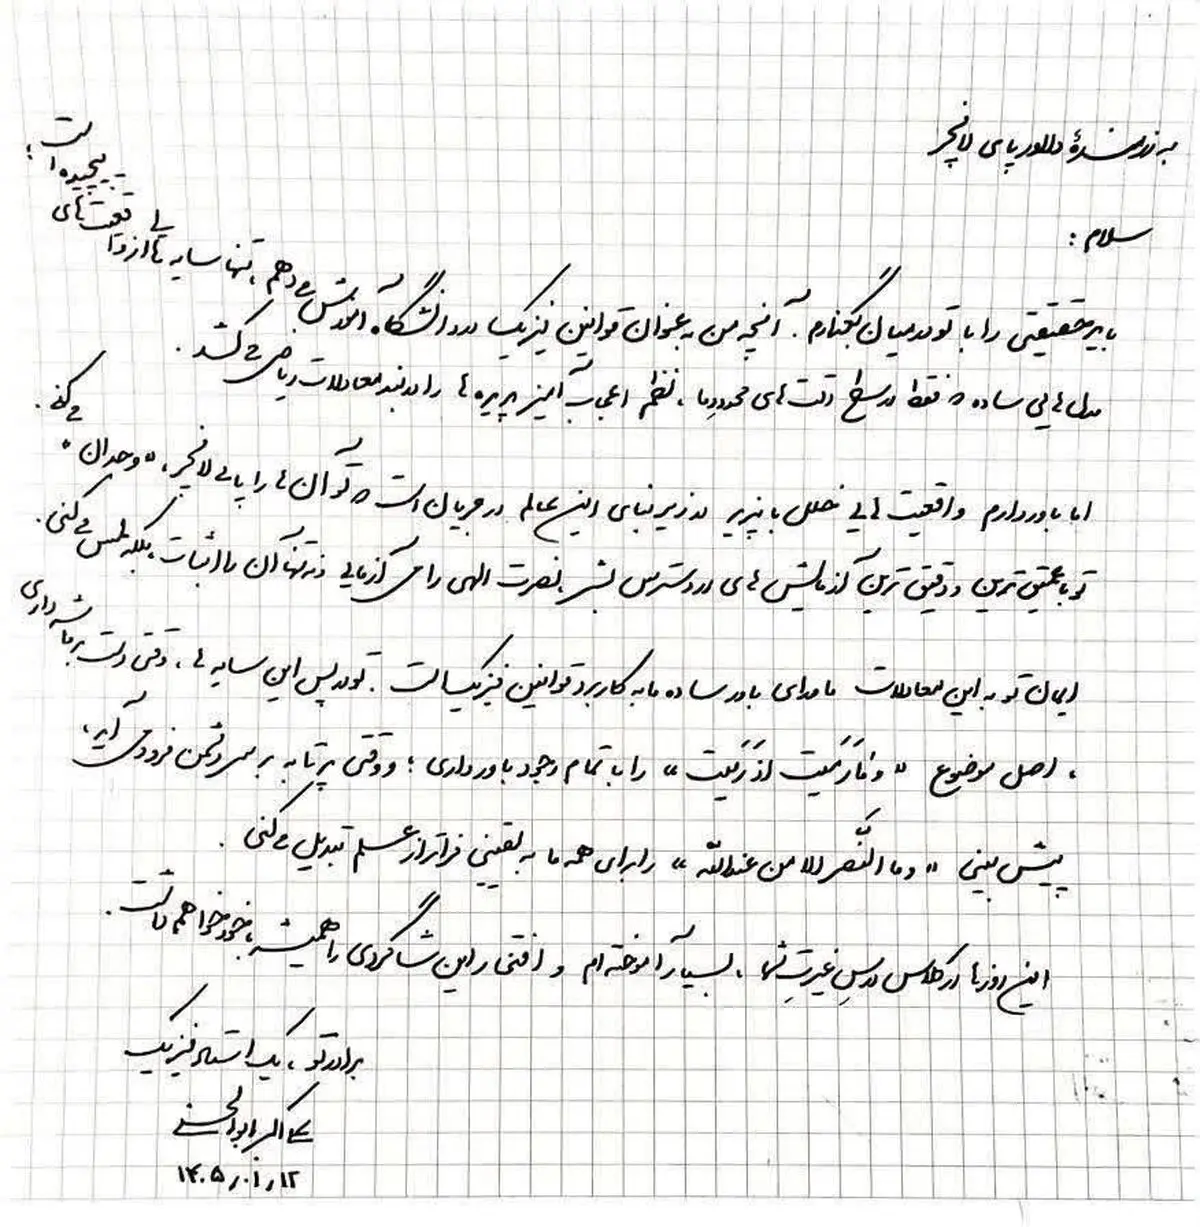 به رزمندهٔ دلاور پای لانچر
سلام:
باید حقیقتی را با تو در میان بگذارم. آنچه من به عنوان قوانین فیزیک در دانشگاه آموزش می‌دهم، تنها سایه‌هایی از واقعیت‌های پیچیده است؛
مدل‌هایی ساده که فقط در سطح دقت‌های محدودِ ما، نظم اعجاب‌آمیز پدیده‌ها را در بند معادلات ریاضی می‌کشد.
اما باور دارم واقعیت‌هایی خلل‌ناپذیر در زیربنای این عالم در جریان است که تو آن‌ها را پای لانچر، «وجدان» می‌کنی.
تو با عمیق‌ترین و دقیق‌ترین آزمایش‌های در دسترس بشر، نصرت الهی را می‌آزمایی و نه تنها آن را اثبات، بلکه لمس می‌کنی.
ایمان تو به این معادلات ماورای باور ساده ما به کاربرد قوانین فیزیک است. تو در پس این سایه‌ها، وقتی دست بر ماشه داری
، اصل موضوع «و ما رَمَیتَ اذ رَمَیت» را با تمام وجود باور داری؛ و وقتی پرتابه بر سر دشمن فرود می‌آید،
پیش‌بینی «و ما النَّصر الا من عندالله» را برای همه ما به یقینی فراتر از علم تبدیل می‌کنی.
این روزها در کلاس درسِ غیرتِ شما، بسیار آموخته‌ام و افتخار این شاگردی را همیشه با خود خواهم داشت.
برادر تو، یک استاد فیزیک
اکبر ابوالحسنی
۱۴۰۵/۰۱/۱۲